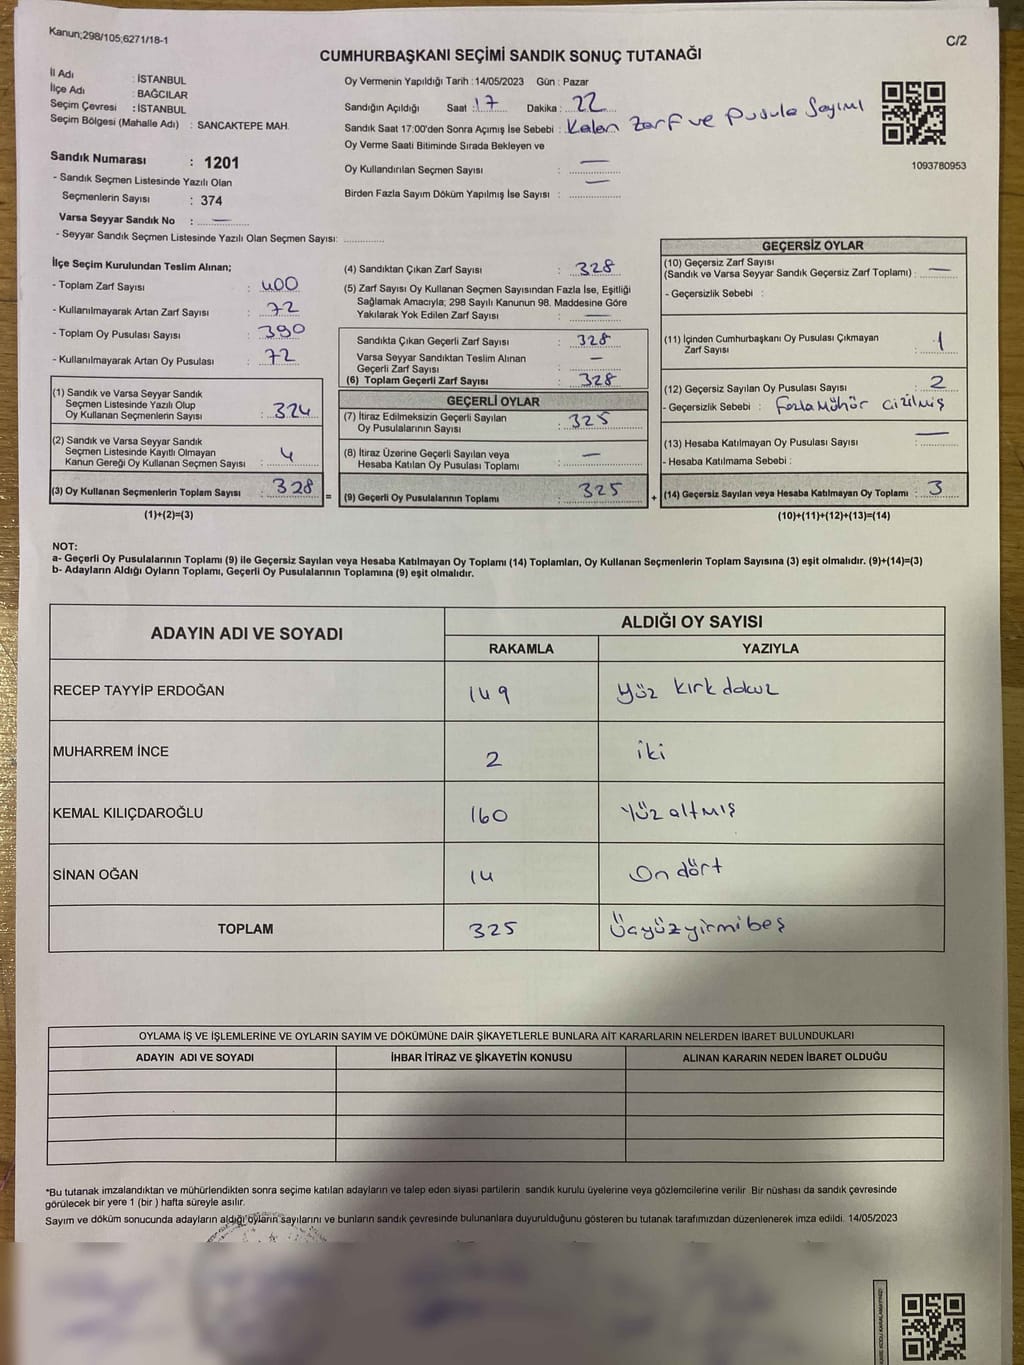 Kanun;298/105;6271/18-1
C/2
CUMHURBAŞKANI SEÇİMİ SANDIK SONUÇ TUTANAĞI
İl Adı : İSTANBUL
İlçe Adı : BAĞCILAR
Seçim Çevresi : İSTANBUL
Seçim Bölgesi (Mahalle Adı) : SANCAKTEPE MAH.
Sandık Numarası : 1201
- Sandık Seçmen Listesinde Yazılı Olan
Seçmenlerin Sayısı : 374
Varsa Seyyar Sandık No : —
- Seyyar Sandık Seçmen Listesinde Yazılı Olan Seçmen Sayısı: ............
Oy Vermenin Yapıldığı Tarih : 14/05/2023 Gün : Pazar
Sandığın Açıldığı Saat : 17 Dakika : 22
Sandık Saat 17:00'den Sonra Açımış İse Sebebi : Kalan Zarf ve Pusula Sayımı
Oy Verme Saati Bitiminde Sırada Bekleyen ve
Oy Kullandırılan Seçmen Sayısı : —
Birden Fazla Sayım Döküm Yapılmış İse Sayısı : —
1093780953
İlçe Seçim Kurulundan Teslim Alınan;
- Toplam Zarf Sayısı : 400
- Kullanılmayarak Artan Zarf Sayısı : 72
- Toplam Oy Pusulası Sayısı : 390
- Kullanılmayarak Artan Oy Pusulası : 72
(1) Sandık ve Varsa Seyyar Sandık
Seçmen Listesinde Yazılı Olup
Oy Kullanan Seçmenlerin Sayısı : 324
(2) Sandık ve Varsa Seyyar Sandık
Seçmen Listesinde Kayıtlı Olmayan
Kanun Gereği Oy Kullanan Seçmen Sayısı : 4
(3) Oy Kullanan Seçmenlerin Toplam Sayısı : 328
(1)+(2)=(3)
=
(4) Sandıktan Çıkan Zarf Sayısı : 328
(5) Zarf Sayısı Oy Kullanan Seçmen Sayısından Fazla İse, Eşitliği
Sağlamak Amacıyla; 298 Sayılı Kanunun 98. Maddesine Göre
Yakılarak Yok Edilen Zarf Sayısı : —
Sandıkta Çıkan Geçerli Zarf Sayısı : 328
Varsa Seyyar Sandıktan Teslim Alınan
Geçerli Zarf Sayısı : —
(6) Toplam Geçerli Zarf Sayısı : 328
GEÇERLİ OYLAR
(7) İtiraz Edilmeksizin Geçerli Sayılan
Oy Pusulalarının Sayısı : 325
(8) İtiraz Üzerine Geçerli Sayılan veya
Hesaba Katılan Oy Pusulası Toplamı : —
(9) Geçerli Oy Pusulalarının Toplamı : 325
+
GEÇERSİZ OYLAR
(10) Geçersiz Zarf Sayısı
(Sandık ve Varsa Seyyar Sandık Geçersiz Zarf Toplamı) : —
- Geçersizlik Sebebi :
(11) İçinden Cumhurbaşkanı Oy Pusulası Çıkmayan
Zarf Sayısı : 1
(12) Geçersiz Sayılan Oy Pusulası Sayısı : 2
- Geçersizlik Sebebi : Fazla Mühür Çizilmiş
(13) Hesaba Katılmayan Oy Pusulası Sayısı : —
- Hesaba Katılmama Sebebi :
(14) Geçersiz Sayılan veya Hesaba Katılmayan Oy Toplamı : 3
(10)+(11)+(12)+(13)=(14)
NOT:
a- Geçerli Oy Pusulalarının Toplamı (9) ile Geçersiz Sayılan veya Hesaba Katılmayan Oy Toplamı (14) Toplamları, Oy Kullanan Seçmenlerin Toplam Sayısına (3) eşit olmalıdır. (9)+(14)=(3)
b- Adayların Aldığı Oyların Toplamı, Geçerli Oy Pusulalarının Toplamına (9) eşit olmalıdır.
ADAYIN ADI VE SOYADI ALDIĞI OY SAYISI
RAKAMLA YAZIYLA
RECEP TAYYİP ERDOĞAN 149 Yüz kırk dokuz
MUHARREM İNCE 2 iki
KEMAL KILIÇDAROĞLU 160 Yüz altmış
SİNAN OĞAN 14 On dört
TOPLAM 325 Üçyüzyirmibeş
OYLAMA İŞ VE İŞLEMLERİNE VE OYLARIN SAYIM VE DÖKÜMÜNE DAİR ŞİKAYETLERLE BUNLARA AİT KARARLARIN NELERDEN İBARET BULUNDUKLARI
ADAYIN ADI VE SOYADI İHBAR İTİRAZ VE ŞİKAYETİN KONUSU ALINAN KARARIN NEDEN İBARET OLDUĞU
*Bu tutanak imzalandıktan ve mühürlendikten sonra seçime katılan adayların ve talep eden siyasi partilerin sandık kurulu üyelerine veya gözlemcilerine verilir Bir nüshası da sandık çevresinde
görülecek bir yere 1 (bir ) hafta süreyle asılır.
Sayım ve döküm sonucunda adayların aldığı oyların sayılarını ve bunların sandık çevresinde bulunanlara duyurulduğunu gösteren bu tutanak tarafımızdan düzenlenerek imza edildi. 14/05/2023